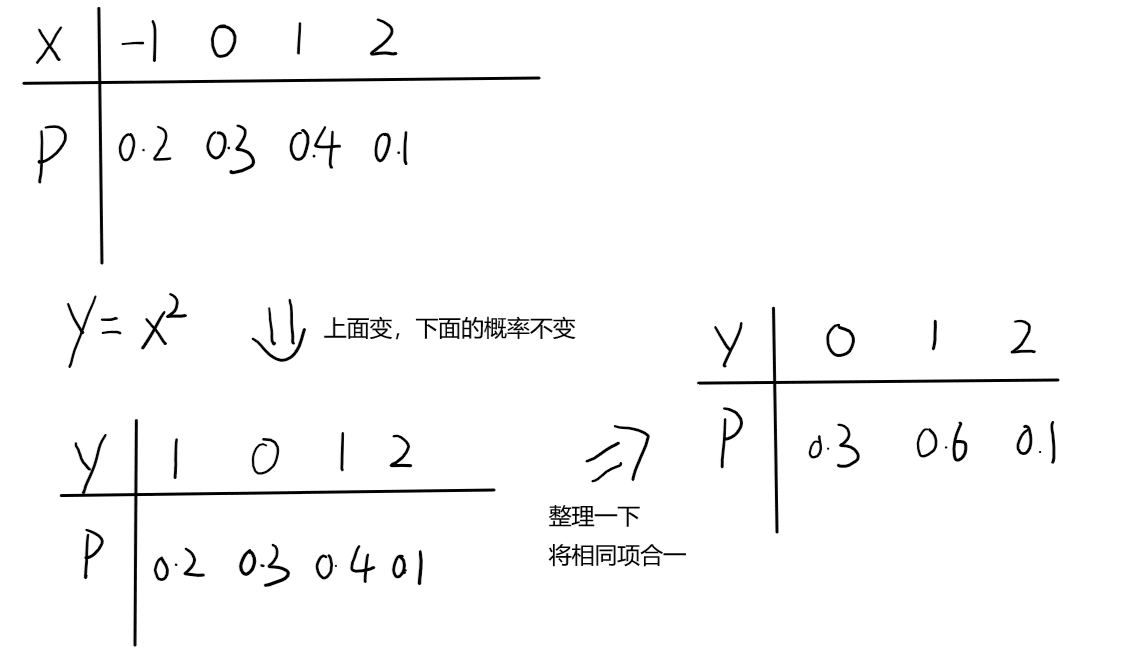 X -1 0 1 2
P 0.2 0.3 0.4 0.1
Y = X²
上面变，下面的概率不变
Y 1 0 1 2
P 0.2 0.3 0.4 0.1
整理一下
将相同项合一
Y 0 1 2
P 0.3 0.6 0.1